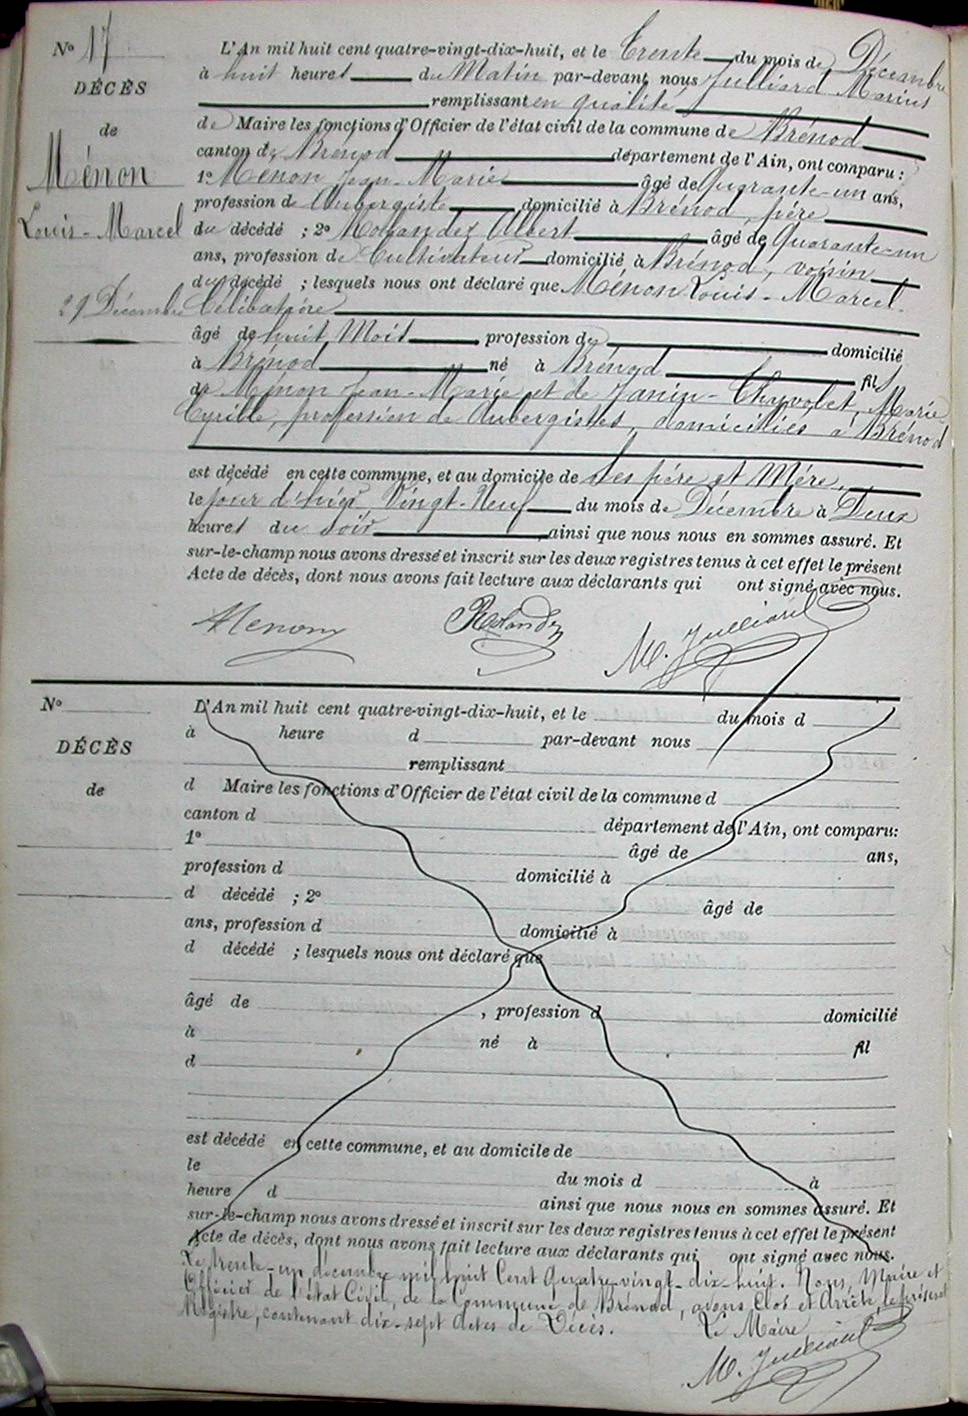 N° 17
DÉCÈS
de
Ménon
Louis-Marcel
29 Décembre
L'An mil huit cent quatre-vingt-dix-huit, et le Trente du mois de Décembre
à huit heures du Matin par-devant nous Julliard Marius
remplissant en qualité
de Maire les fonctions d'Officier de l'état civil de la commune de Brénod
canton de Brénod département de l'Ain, ont comparu :
1° Ménon Jean-Marie âgé de Quarante-un ans,
profession d'Aubergiste domicilié à Brénod, père
du décédé ; 2° Albert âgé de Quarante-un
ans, profession de Cultivateur domicilié à Brénod, voisin
du décédé ; lesquels nous ont déclaré que Ménon Louis-Marcel.
Célibataire
âgé de huit Mois profession de domicilié
à Brénod né à Brénod fils
de Ménon Jean-Marie et de Janin-Thivolet, Marie
Cyrille, profession de Aubergistes, domiciliés à Brénod
est décédé en cette commune, et au domicile de ses père et Mère,
le jour d'hier Vingt-Neuf du mois de Décembre à Deux
heures du soir ainsi que nous nous en sommes assuré. Et
sur-le-champ nous avons dressé et inscrit sur les deux registres tenus à cet effet le présent
Acte de décès, dont nous avons fait lecture aux déclarants qui ont signé avec nous.
Menon M. Julliard
N°
DÉCÈS
de
L'An mil huit cent quatre-vingt-dix-huit, et le du mois d
à heure d par-devant nous
remplissant
d Maire les fonctions d'Officier de l'état civil de la commune d
canton d département de l'Ain, ont comparu:
1° âgé de ans,
profession d domicilié à
d décédé ; 2° âgé de
ans, profession d domicilié à
d décédé ; lesquels nous ont déclaré que
âgé de , profession d domicilié
à né à fil
d
est décédé en cette commune, et au domicile de
le du mois d à
heure d ainsi que nous nous en sommes assuré. Et
sur-le-champ nous avons dressé et inscrit sur les deux registres tenus à cet effet le présent
Acte de décès, dont nous avons fait lecture aux déclarants qui ont signé avec nous.
Le trente-un décembre mil huit Cent Quatre-vingt-dix-huit. Nous, Maire et
Officier de l'état Civil, de la Commune de Brénod, avons Clos et Arrêté, le présent
Registre, contenant dix-sept Actes de Décès. Le Maire,
M. Julliard